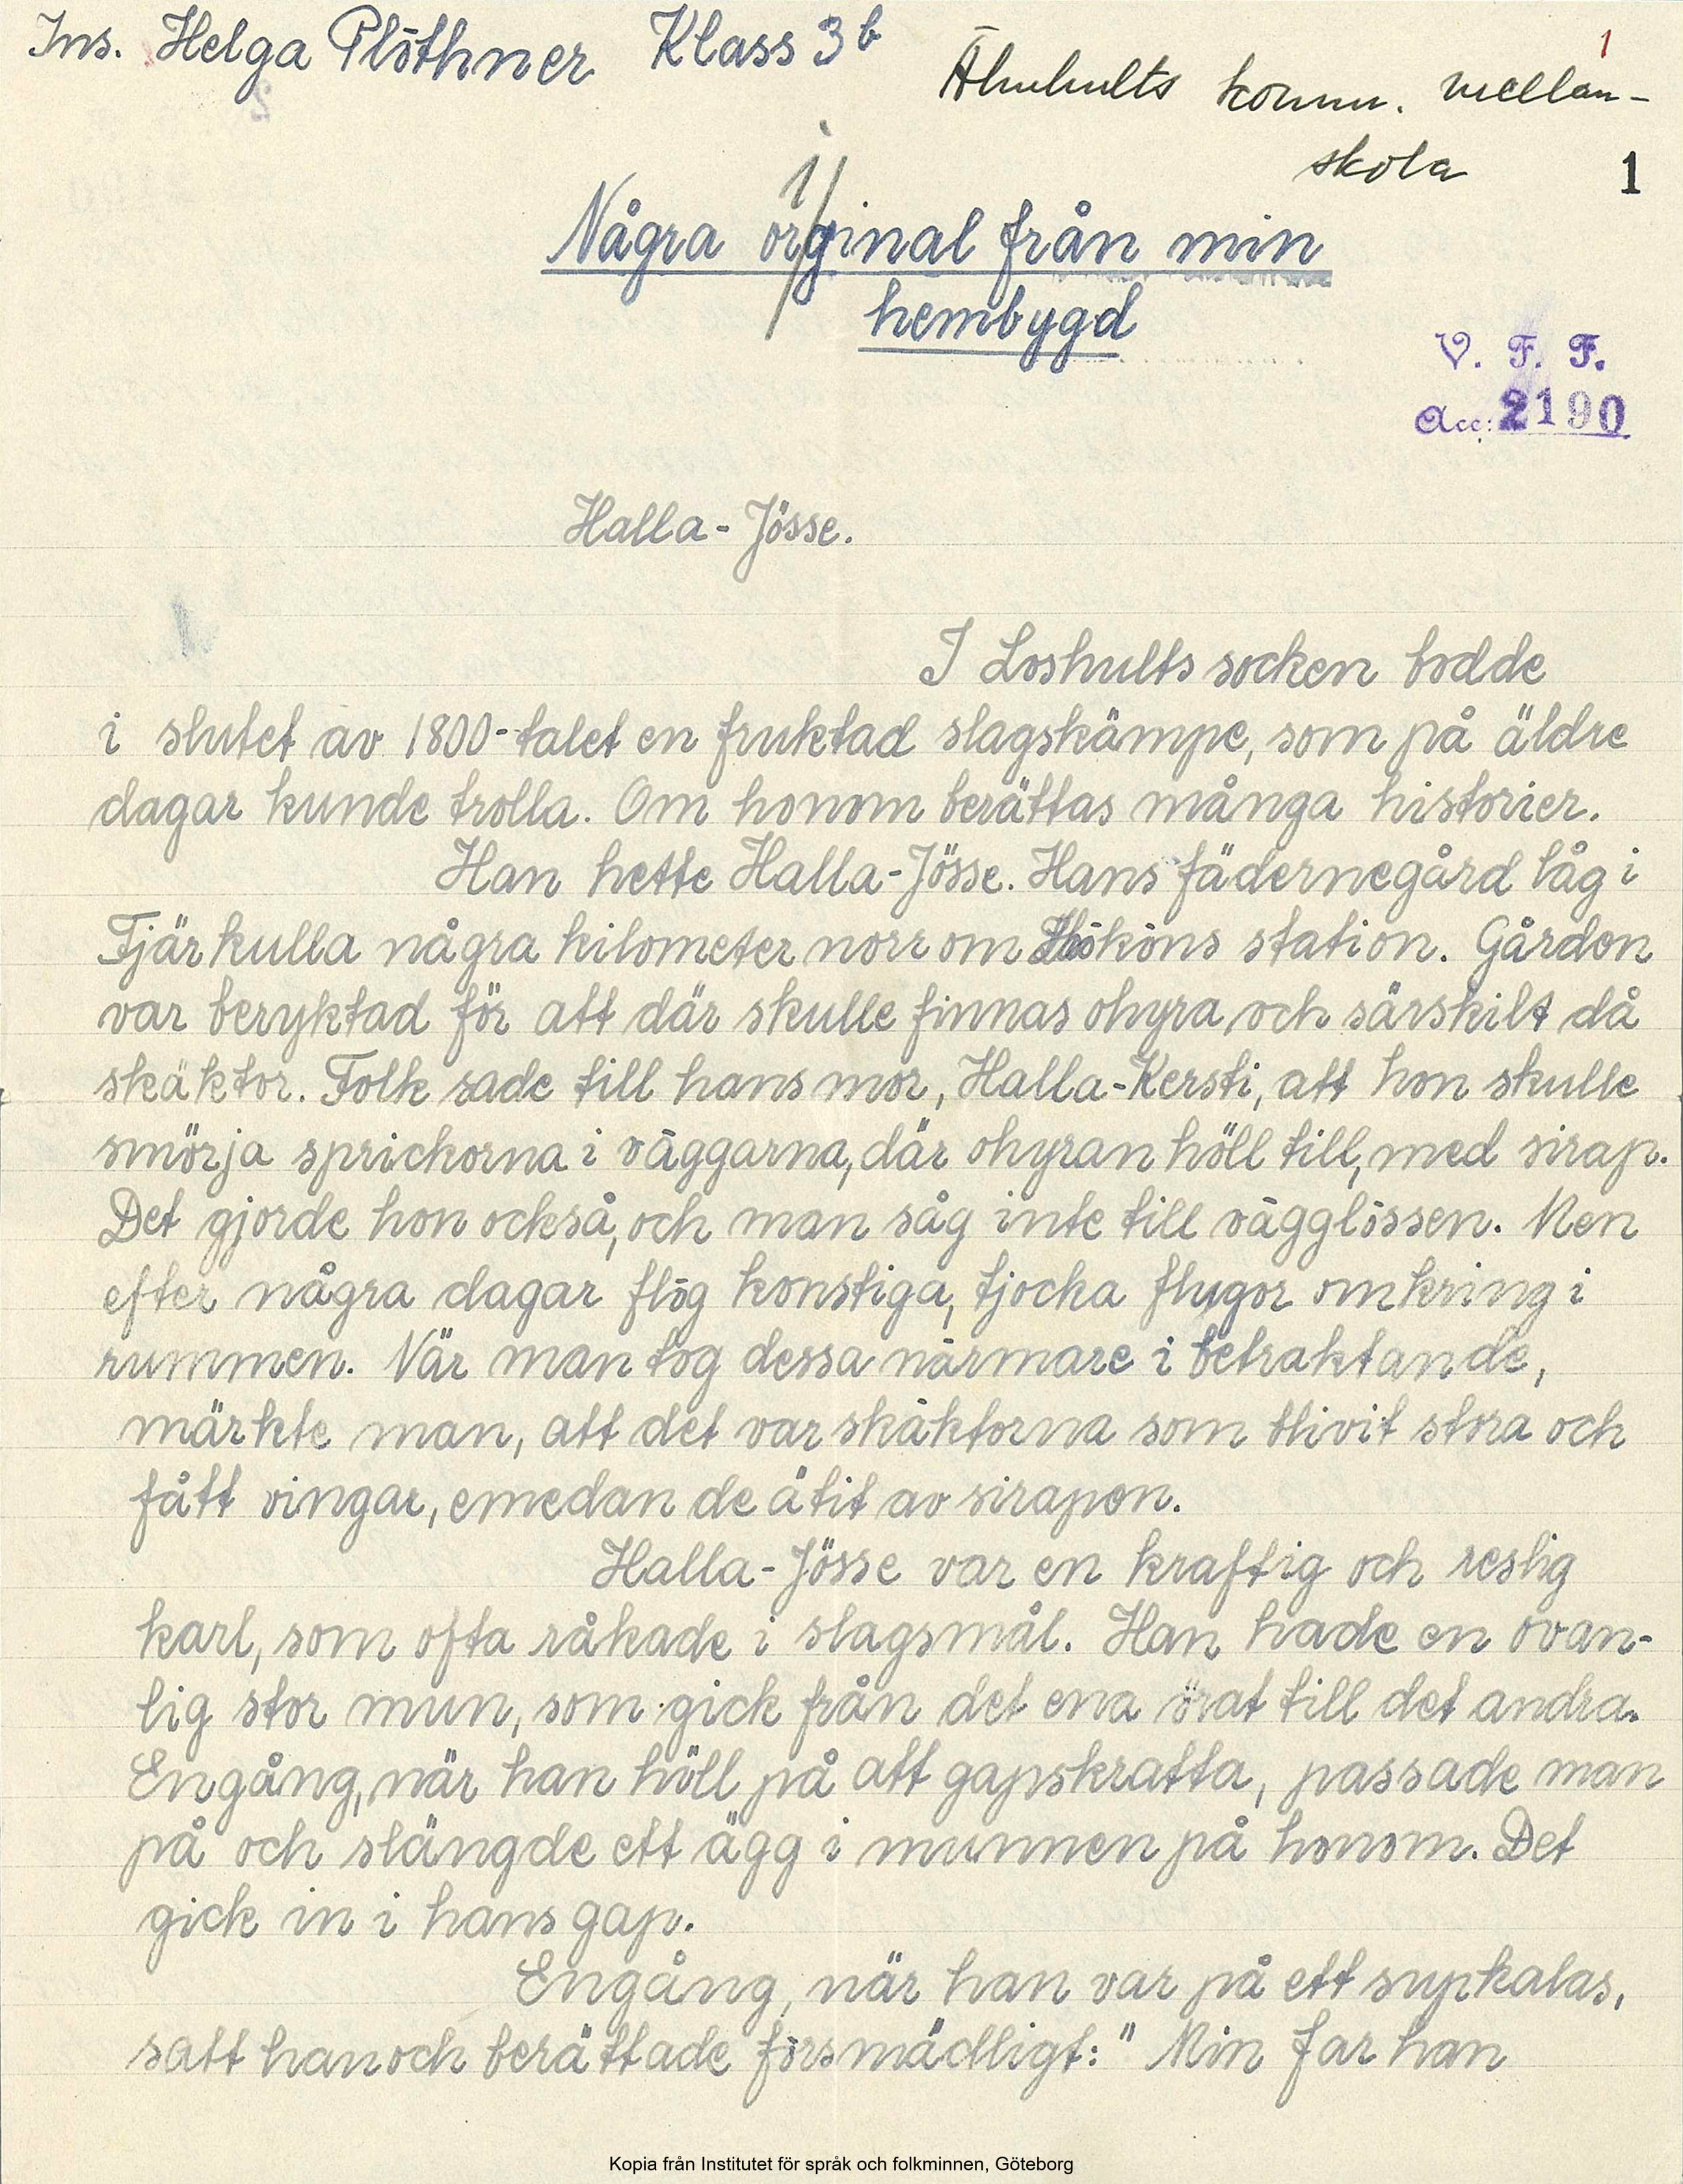 Ins. Helga Plöthner Klass 3b
1
Älmhults komm. mellan-
skola
1
i
Några orginal från min
hembygd
V. F. F.
Acc: 2190
Halla-Jösse.
I Loshults socken bodde
i slutet av 1800-talet en fruktad slagskämpe, som på äldre
dagar kunde trolla. Om honom berättas många historier.
Han hette Halla-Jösse. Hans fädernegård låg i
Fjärkulla några kilometer norr om Hököns station. Gården
var beryktad för att där skulle finnas ohyra och särskilt då
skäktor. Folk sade till hans mor, Halla-Kersti, att hon skulle
smörja sprickorna i väggarna, där ohyran höll till, med sirap.
Det gjorde hon också, och man såg inte till vägglössen. Men
efter några dagar flög konstiga, tjocka flugor omkring i
rummen. När man tog dessa närmare i betraktande,
märkte man, att det var skäktorna som blivit stora och
fått vingar, emedan de ätit av sirapen.
Halla-Jösse var en kraftig och reslig
karl, som ofta råkade i slagsmål. Han hade en ovan-
lig stor mun, som gick från det ena örat till det andra.
Engång, när han höll på att gapskratta, passade man
på och slängde ett ägg i munnen på honom. Det
gick in i hans gap.
Engång, när han var på ett supkalas,
satt han och berättade försmädligt: " Min far han
Kopia från Institutet för språk och folkminnen, Göteborg